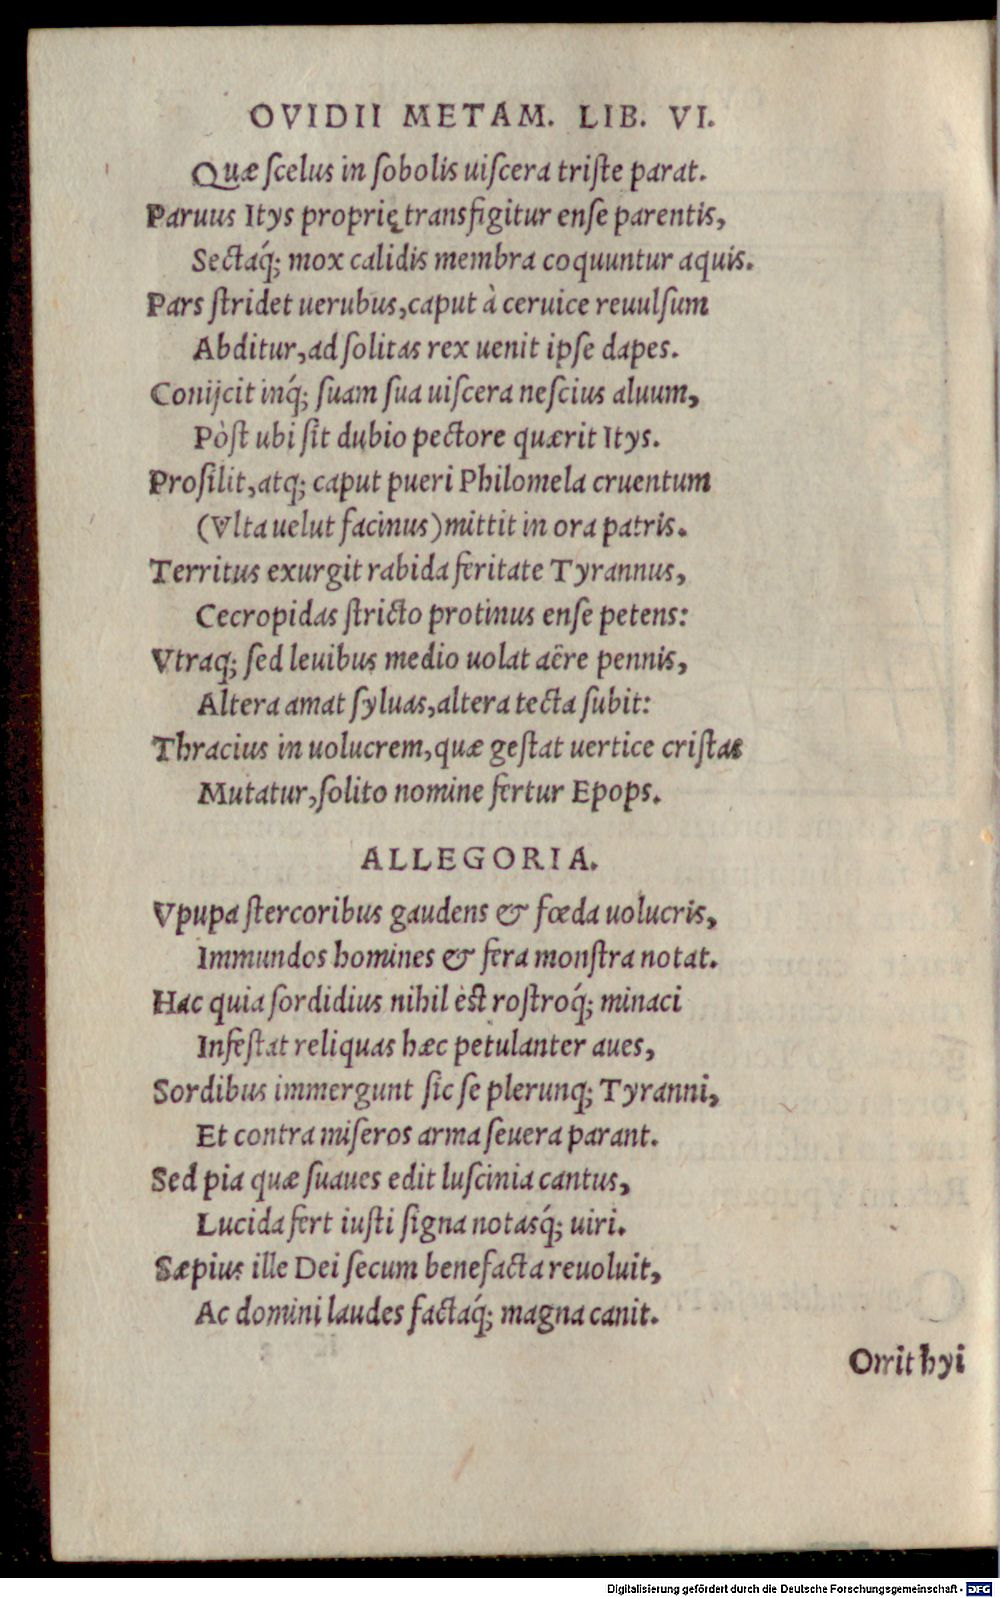 OVIDII METAM. LIB. VI.
Quæ ſcelus in ſobolis uiſcera triſte parat.
Paruus Itys proprię transfigitur enſe parentis,
Sectaq́; mox calidis membra coquuntur aquis.
Pars ſtridet uerubus, caput à ceruice reuulſum
Abditur, ad ſolitas rex uenit ipſe dapes.
Conijcit inq́; ſuam ſua uiſcera neſcius aluum,
Pòſt ubi ſit dubio pectore quærit Itys.
Proſilit, atq; caput pueri Philomela cruentum
(Vlta uelut facinus) mittit in ora patris.
Territus exurgit rabida feritate Tyrannus,
Cecropidas ſtricto protinus enſe petens:
Vtraq; ſed leuibus medio uolat aëre pennis,
Altera amat ſyluas, altera tecta ſubit:
Thracius in uolucrem, quæ geſtat uertice criſtas
Mutatur, ſolito nomine fertur Epops.
ALLEGORIA.
Vpupa ſtercoribus gaudens & fœda uolucris,
Immundos homines & fera monſtra notat.
Hac quia ſordidius nihil èſt roſtroq́; minaci
Infeſtat reliquas hæc petulanter aues,
Sordibus immergunt ſic ſe plerunq; Tyranni,
Et contra miſeros arma ſeuera parant.
Sed pia quæ ſuaues edit luſcinia cantus,
Lucida fert iuſti ſigna notasq́; uiri.
Sæpius ille Dei ſecum benefacta reuoluit,
Ac domini laudes factaq́; magna canit.
Orrithyi
Digitalisierung gefördert durch die Deutsche Forschungsgemeinschaft - DFG